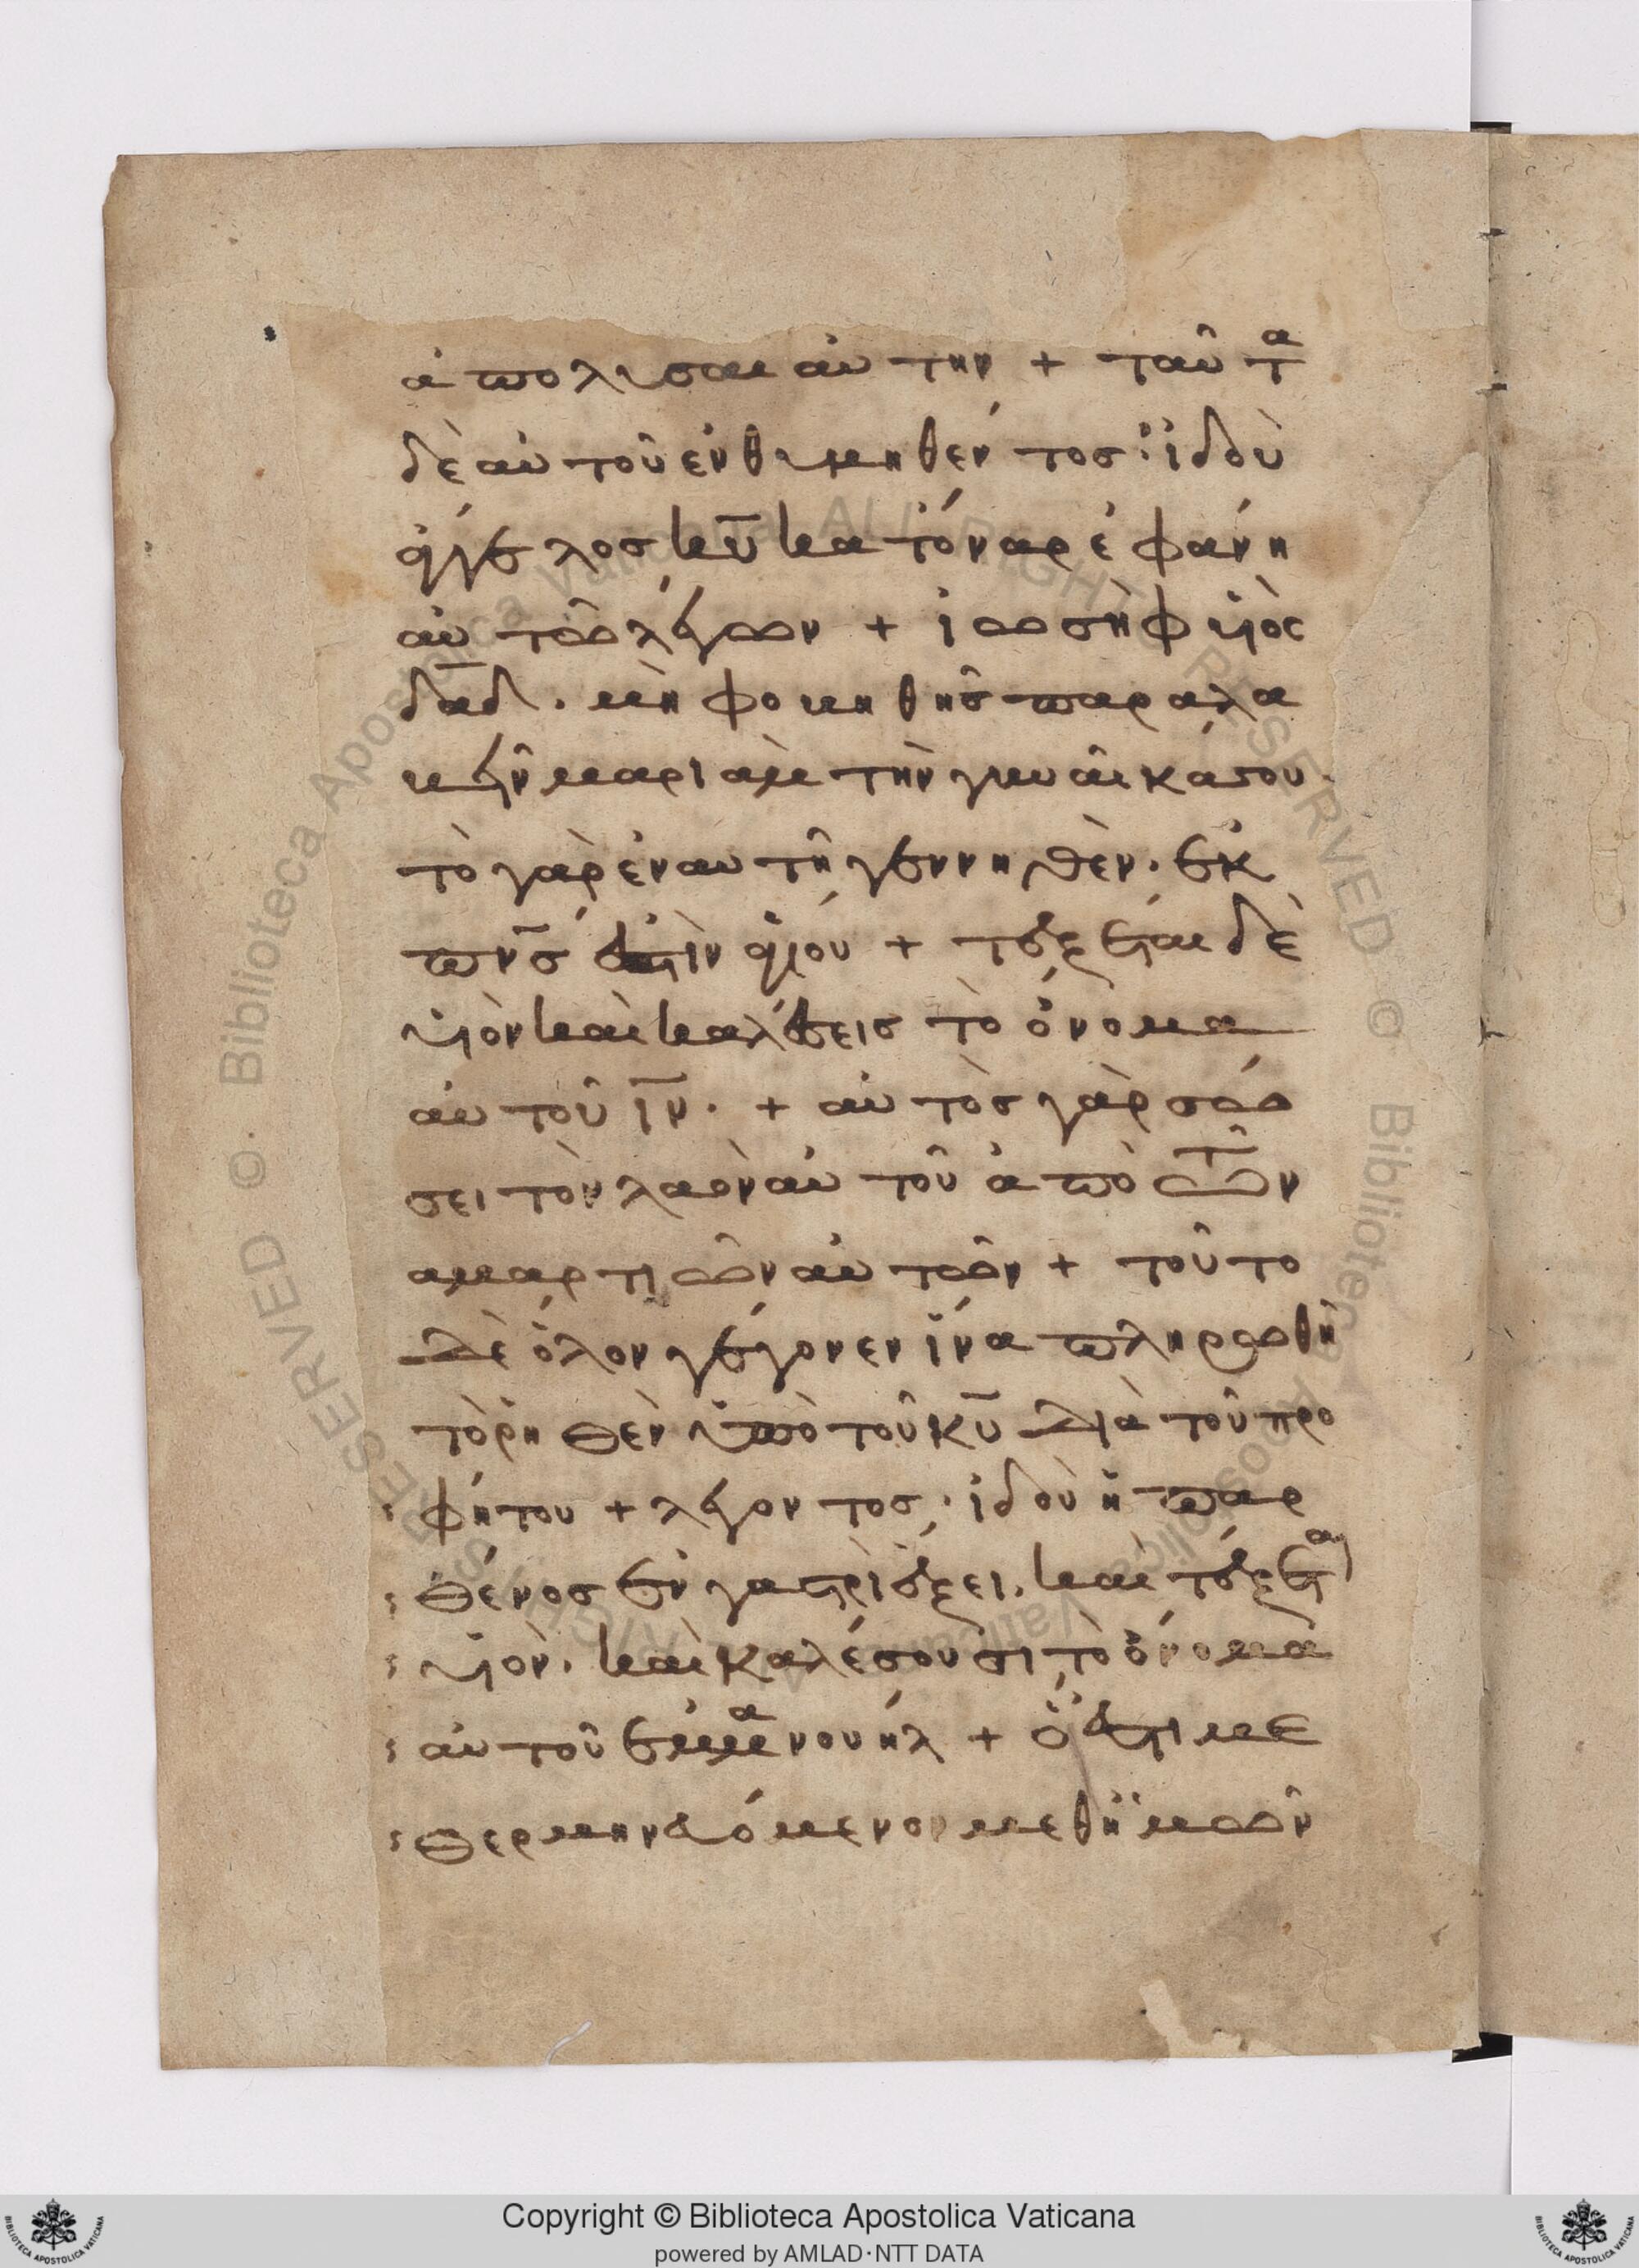 ἀπολῦσαι αὐτήν + ταῦτα
δὲ αὐτοῦ ἐνθυμηθέντος· ἰδοὺ
ἄγγελος κ̅υ̅ κατόναρ ἐφάνη
αὐτῶ λέγων + ἰωσὴφ υἱὸς
δ̅α̅δ̅. μὴ φοβηθῆς παραλα
βεῖν μαριὰμ τὴν γυναῖκά σου.
τὸ γὰρ ἐν αὐτῆ γεννηθὲν. ἐκ
π̅ν̅ς ἐστὶν ἁγίου + τέξεται δὲ
υἱὸν καὶ καλέσεις τὸ ὄνομα
αὐτοῦ ι̅ν̅. + αὐτὸς γὰρ σώ
σει τὸν λαὸν αὐτοῦ ἀπὸ τῶν
αμαρτιῶν αὐτῶν + τοῦτο
δὲ ὅλον γέγονεν ἵνα πληρωθῆ
τὸ ῥηθὲν ὑπὸ τοῦ κ̅υ̅ διὰ τοῦ προ
φήτου + λέγοντος· ἰδοὺ ἡ παρ
θένος ἐν γαστρὶ ἕξει. καὶ τέξεται
υἱὸν. καὶ καλέσουσι τὸ ὄνομα
αὐτοῦ ἐμμανουήλ + ὅ ἐστι με
θερμηνευόμενον μεθ ἡμῶν
Copyright © Biblioteca Apostolica Vaticana
powered by AMLAD·NTT DATA